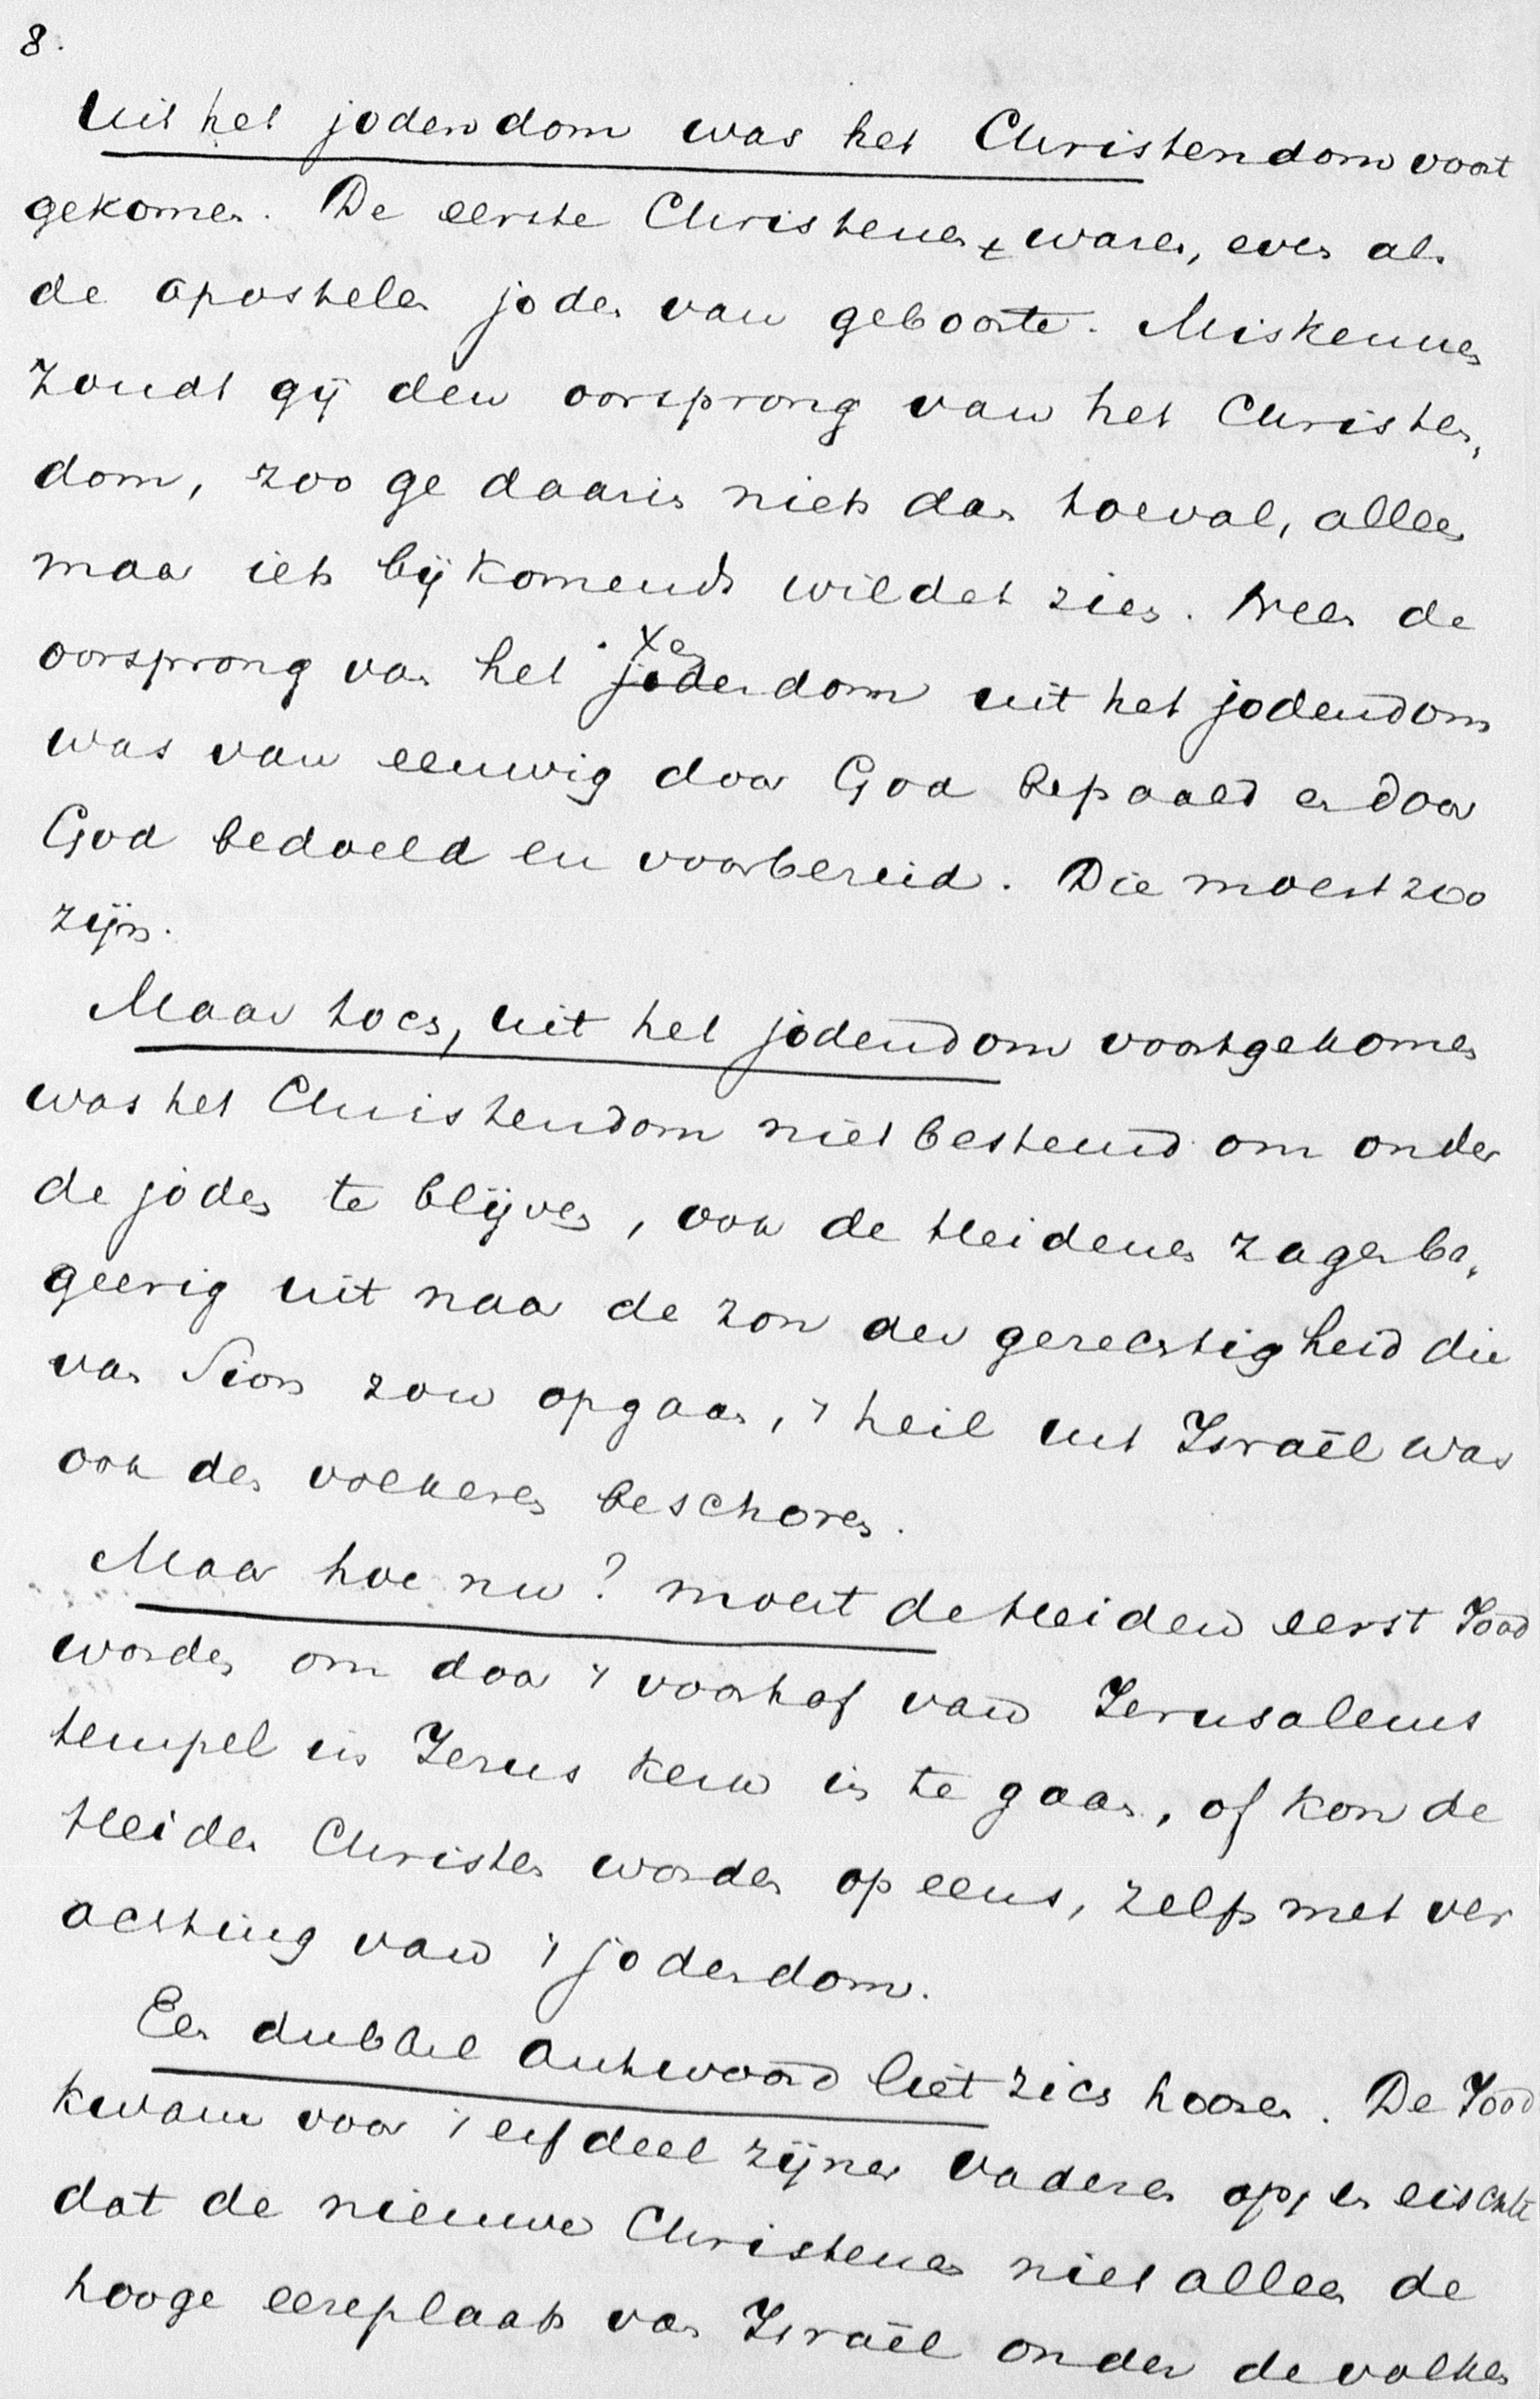 8.
Uit het jodendom was het Christendom voort
gekomen. De eerste Christenen waren, even als
de apostelen joden van geboorte. Miskennen
zoudt gij den oorsprong van het Christen„
dom, zoo ge daarin niets dan toeval, alleen
maar iets bijkomends wildet zien. Neen de
oorsprong van het Xen
jodendom uit het jodendom
was van eeuwig door God bepaald en door
God bedoeld en voorbereid. Die moest zoo
zijn.
Maar toch, uit het jodendom voortgekomen
was het Christendom niet bestemd om onder
de joden te blijven, ook de Heidenen zagen be„
geerig uit naar de zon der gerechtigheid die
van Sion zou opgaan, 't heil uit Israël was
ook den volkeren beschoren.
Maar hoe nu? moest de Heiden eerst Jood
worden om door 't voorhof van Jerusalems
tempel in Jezus kerk in te gaan, of kon de
Heiden Christen worden op eens, zelfs met ver
achting van 't jodendom.
Een dubbel antwoord liet zich hooren. De Jood
kwam voor 't erfdeel zijner vaderen op, en eischte
dat de nieuwe Christenen niet alleen de
hooge eereplaats van Israël onder de volken